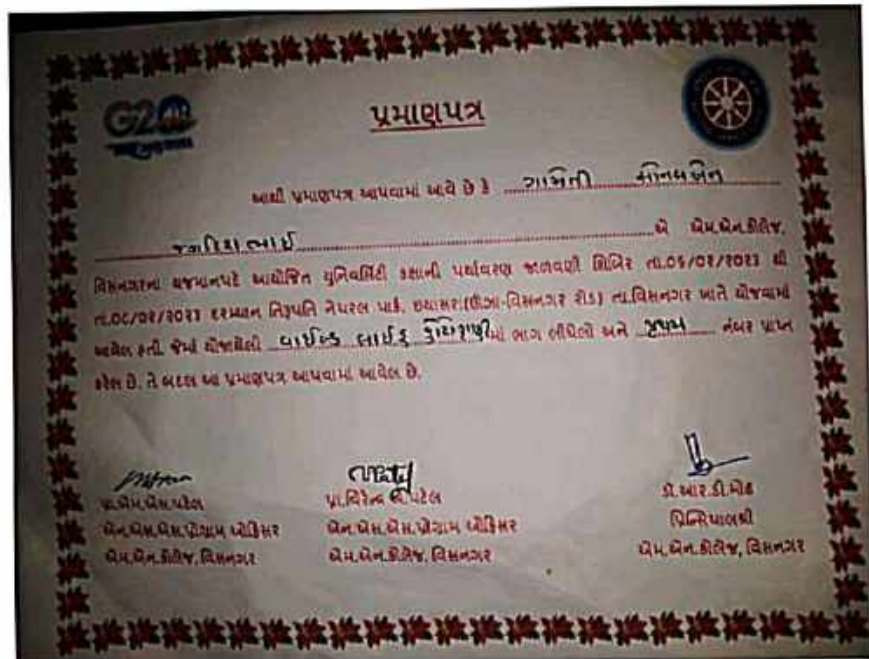 G20
પ્રમાણપત્ર
આથી પ્રમાણપત્ર આપવામાં આવે છે કે ગામેતી મીનલબેન
જગદિશભાઈ એ એમ.એન.કોલેજ,
વિસનગરના યજમાનપદે આયોજિત યુનિવર્સિટી કક્ષાની પર્યાવરણ જાળવણી શિબિર તા.૦૬/૦૨/૨૦૨૩ થી
તા.૦૮/૦૨/૨૦૨૩ દરમ્યાન તિરૂપતિ નેચરલ પાર્ક, (ઊંઝા-વિસનગર રોડ) તા.વિસનગર ખાતે યોજવામાં
આવેલ હતી. જેમાં યોજાયેલી વાઈલ્ડ લાઈફ ફોટોગ્રાફીમાં ભાગ લીધેલો અને પ્રથમ નંબર પ્રાપ્ત
કરેલ છે. તે બદલ આ પ્રમાણપત્ર આપવામાં આવેલ છે.
પ્રા.એમ.એસ.પટેલ પ્રા.વિરેન્દ્ર પટેલ ડૉ.આર.ડી.મોઢ
એન.એસ.એસ.પ્રોગ્રામ ઓફિસર એન.એસ.એસ.પ્રોગ્રામ ઓફિસર પ્રિન્સિપાલશ્રી
એમ.એન.કોલેજ, વિસનગર એમ.એન.કોલેજ, વિસનગર એમ.એન.કોલેજ, વિસનગર